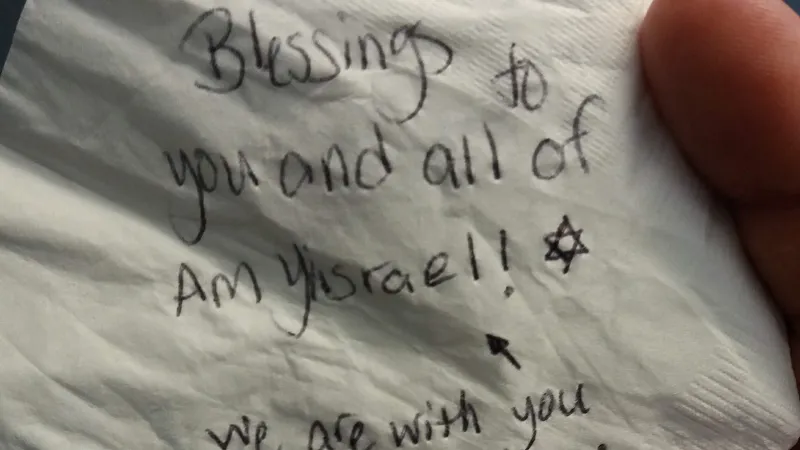 Blessings to
you and all of
Am Yisrael! ✡
we are with you